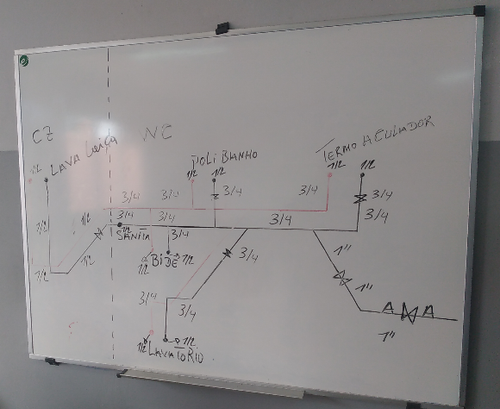 CZ
LAVA LOIÇA
NC
POLI BANHO
TERMO ACULADOR
1/2
1/2
1/2
1/2
1/2
3/4
3/4
3/4
3/4
3/4
3/4
3/4
3/4
3/4
1/2
1/2
1/2
1/2
SANITA
1/2
BIDÉ
1/2
1/2
3/4
3/4
3/4
3/4
1"
1"
1"
1/2
LAVATORIO
1/2